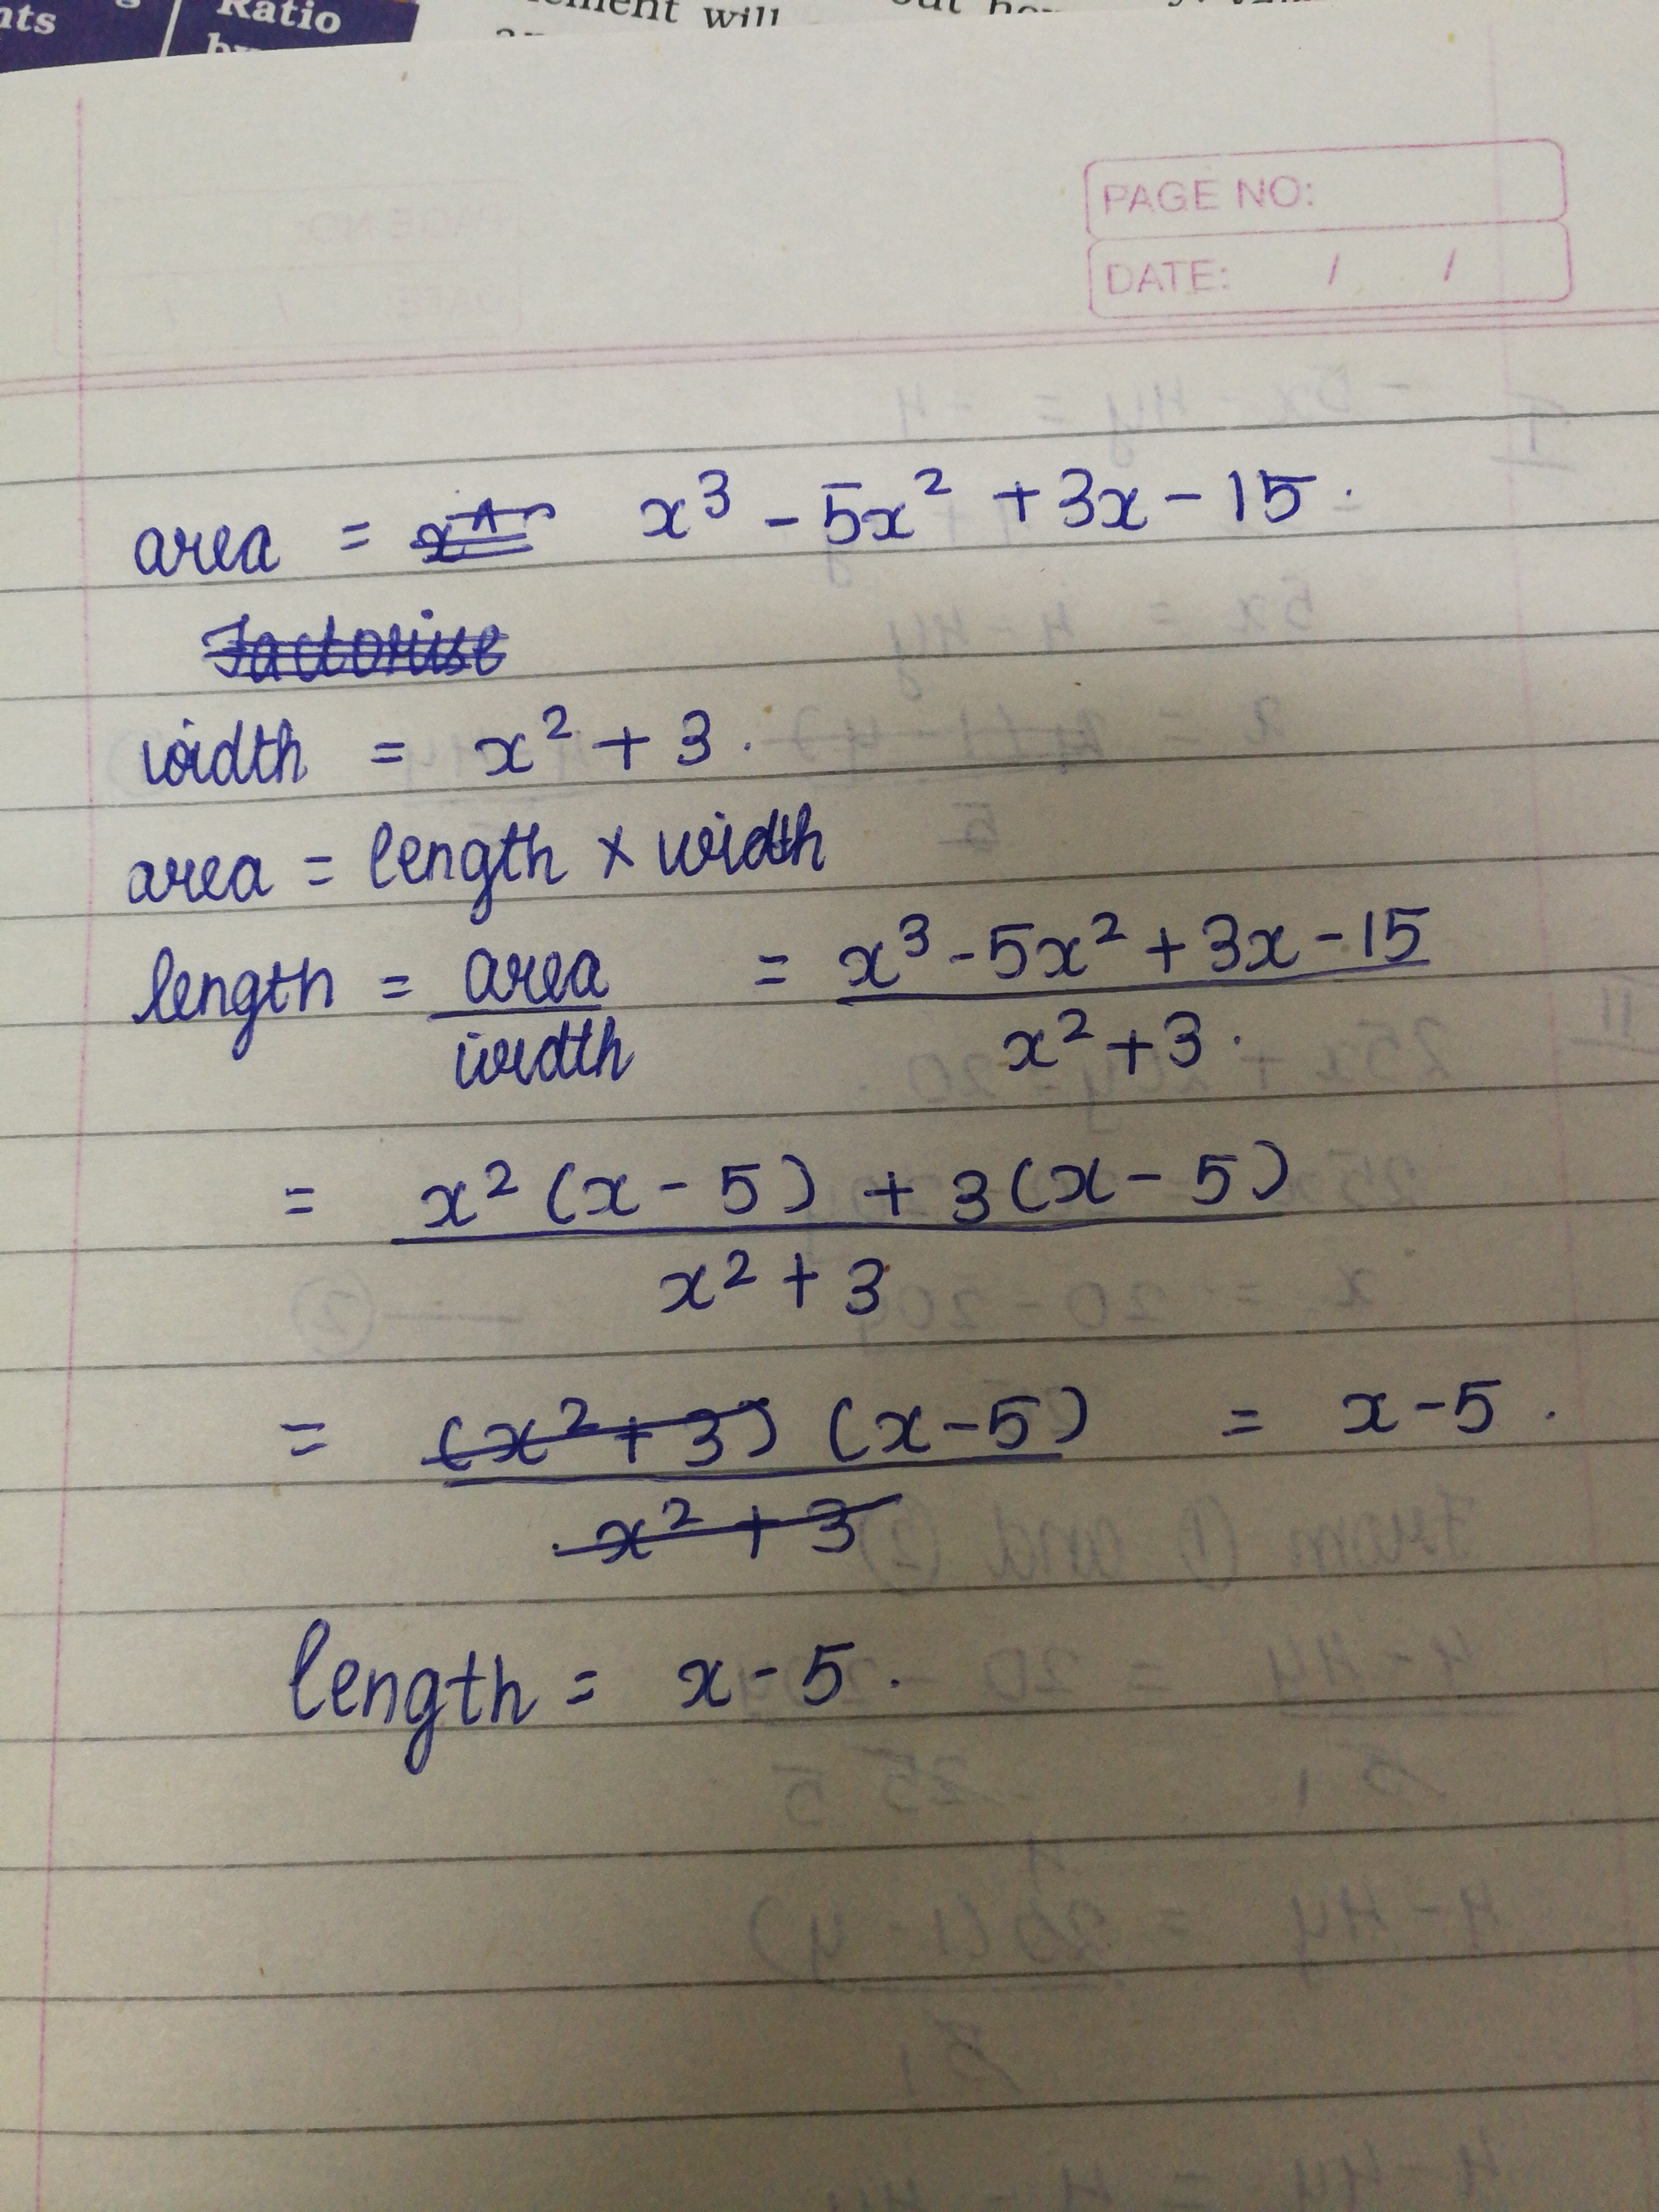 nts Ratio ement will
by
PAGE NO:
DATE: / /
area = x³ - 5x² + 3x - 15.
Factorise
width = x² + 3.
area = length × width
length = area/width = x³ - 5x² + 3x - 15/x² + 3.
= x² (x - 5) + 3 (x - 5)/x² + 3
= (x² + 3) (x - 5)/x² + 3 = x - 5.
length = x - 5.